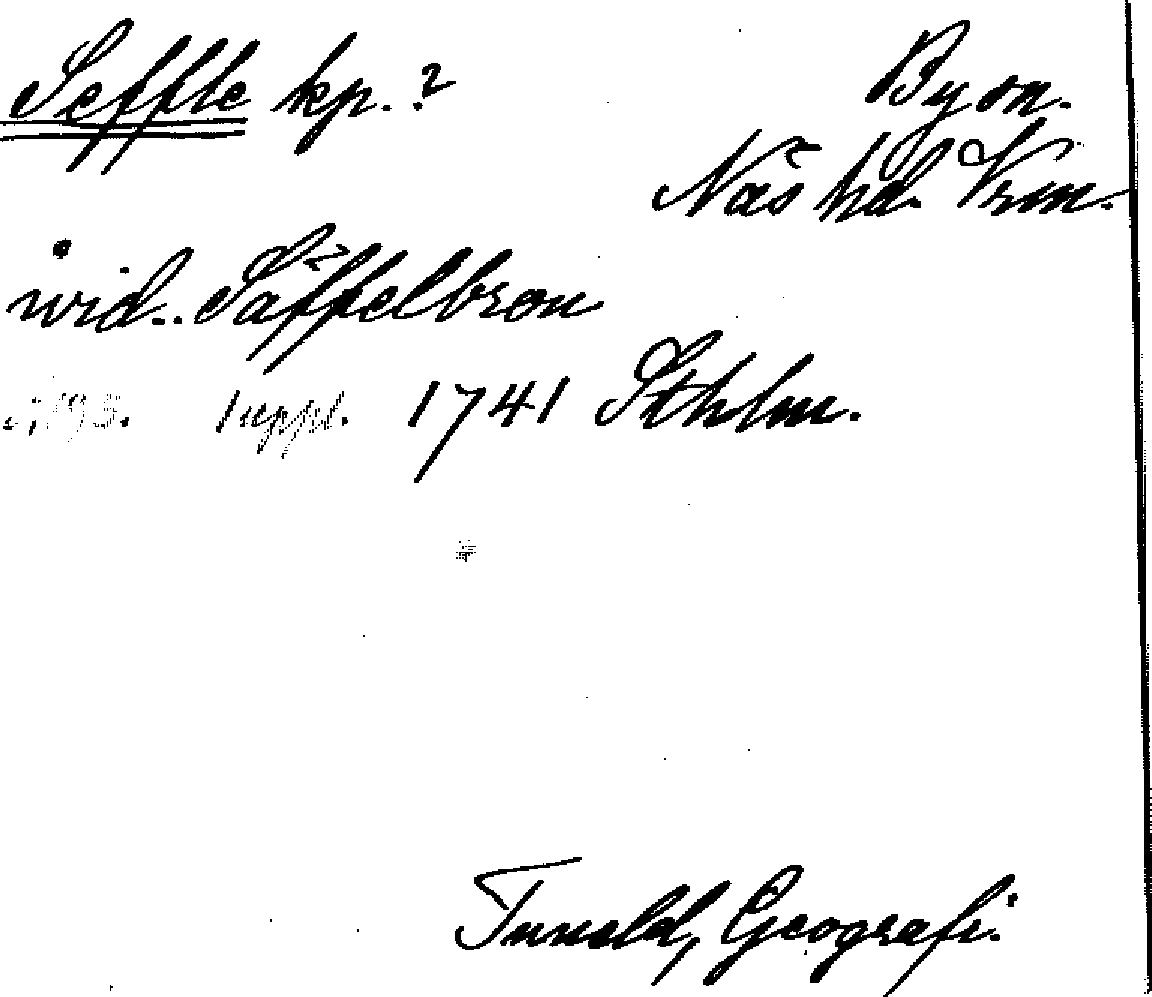 Seffle kp.?
By sn.
Näs hd. Vrm.
wid.. Säffelbron
s. 193. 1 uppl. 1741 Sthlm.
Tuneld, Geografi.